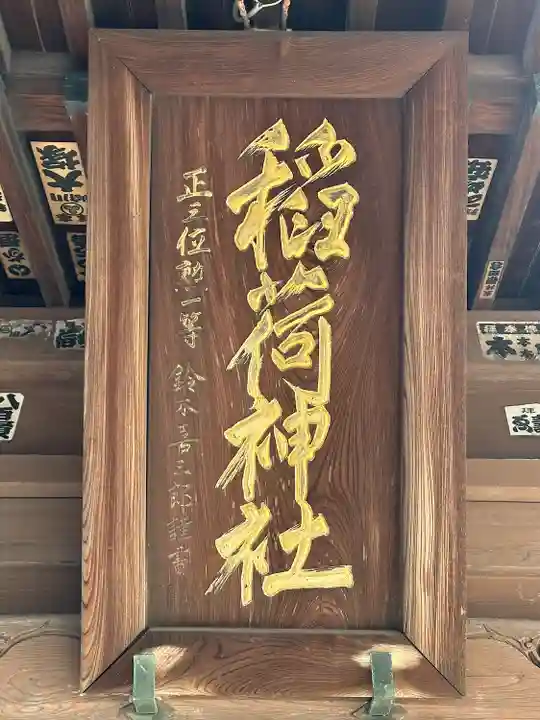 稲荷神社
正三位勲一等 鈴木喜三郎謹書
大塚